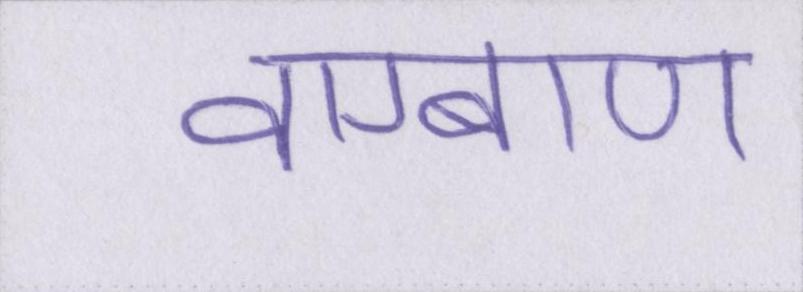 वाग्बाण